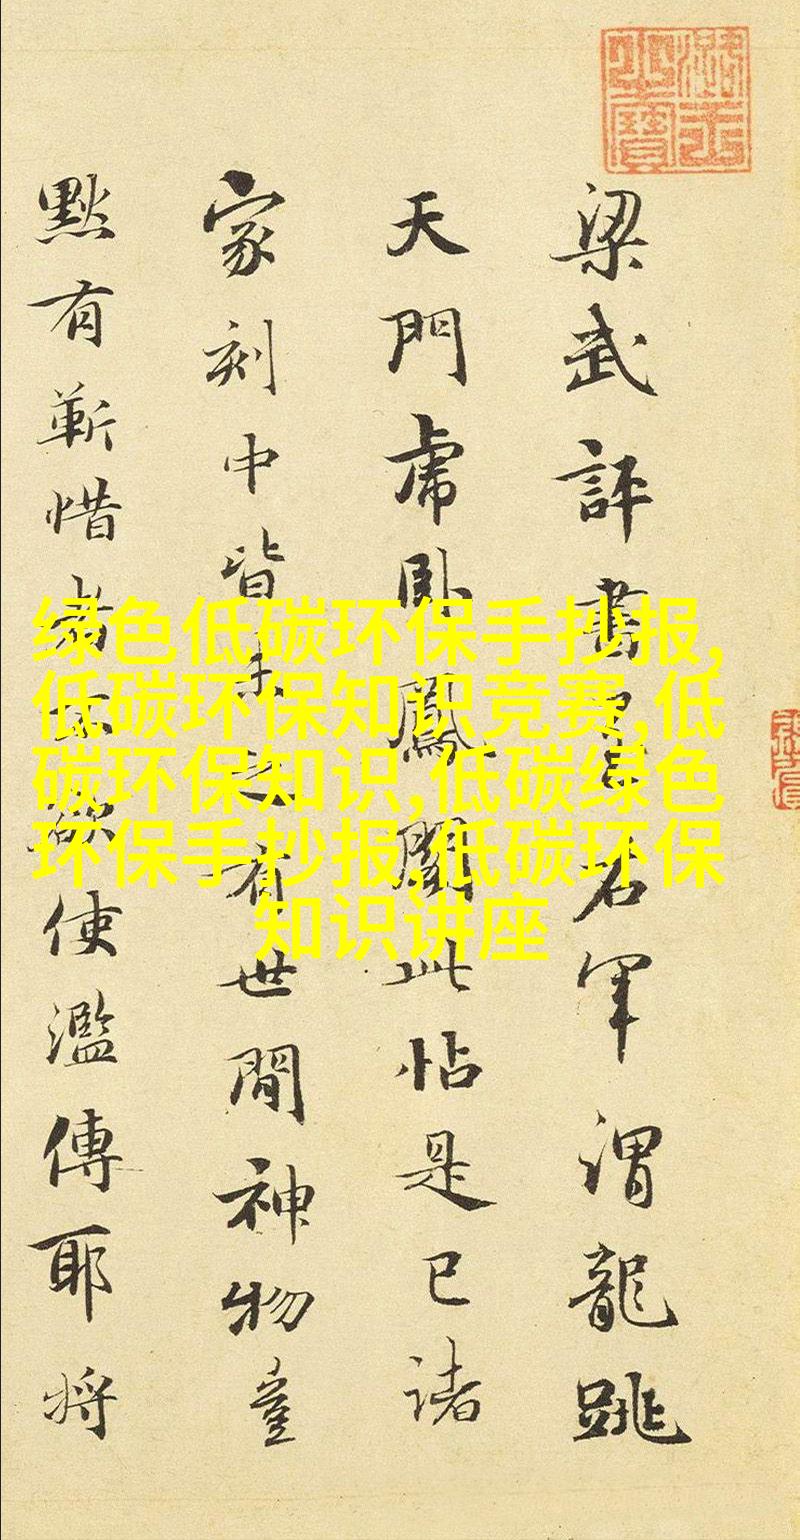 梁武評書右軍謂龍跳
天門虎臥鳳閣此帖是已諸
家刻中皆未之有世間神物豈
黙有靳惜者不欲使濫傳耶將
绿色低碳环保手抄报,
低碳环保知识竞赛,低
碳环保知识,低碳绿色
环保手抄报,低碳环保
知识讲座